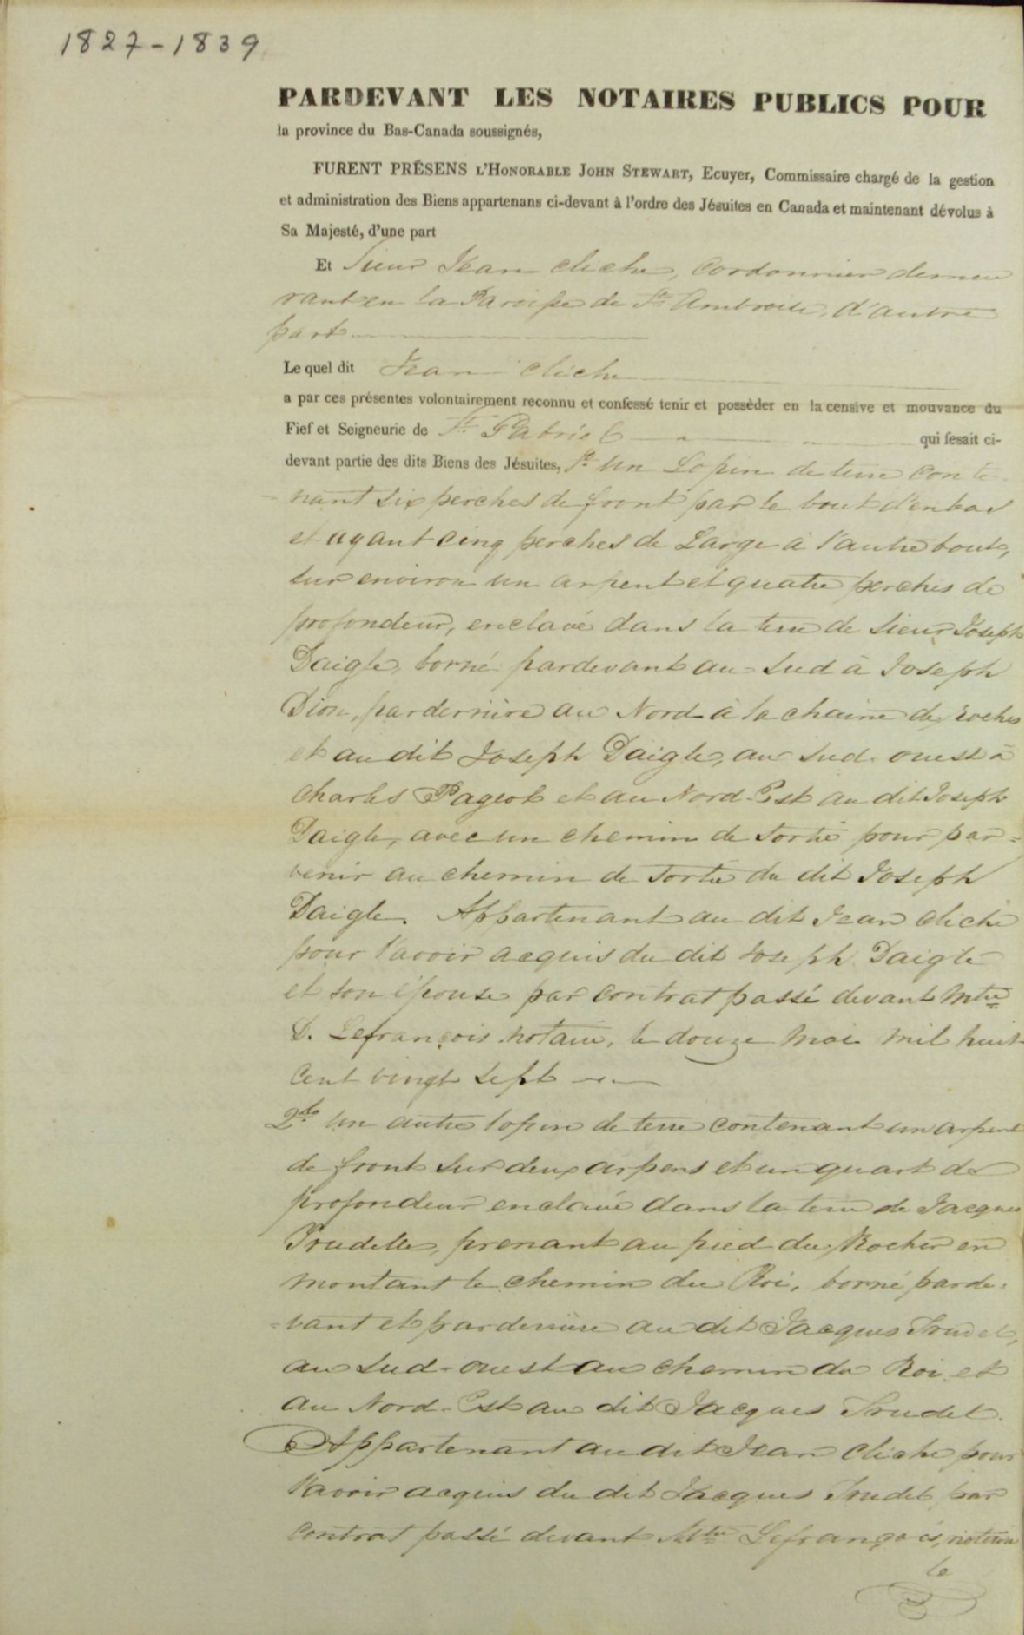 1827-1839
PARDEVANT LES NOTAIRES PUBLICS POUR
la province du Bas-Canada soussignés,
FURENT PRÉSENS L'HONORABLE JOHN STEWART, Ecuyer, Commissaire chargé de la gestion
et administration des Biens appartenans ci-devant à l'ordre des Jésuites en Canada et maintenant dévolus à
Sa Majesté, d'une part
Et Sieur Jean Cliche, Cordonnier demeu
rant en la Paroisse de St Ambroise, d'autre
part
Le quel dit Jean Cliche
a par ces présentes volontairement reconnu et confessé tenir et posséder en la censive et mouvance du
Fief et Seigneurie de St Gabriel qui fesait ci-
devant partie des dits Biens des Jésuites, Un Lopin de terre conte
nant six perches de front par le bout d'en bas
et ayant cinq perches de Large à l'autre bout,
sur environ un arpent et quatre perches de
profondeur, enclavé dans la terre de Sieur Joseph
Daigle, borné pardevant au Sud à Joseph
Dion, parderrière au Nord à la chaine de roches
et au dit Joseph Daigle, au Sud-ouest à
Charles Pageot et au Nord-Est au dit Joseph
Daigle, avec un chemin de sortie pour par=
venir au chemin de sortie du dit Joseph
Daigle. Appartenant au dit Jean Cliche
pour l'avoir acquis du dit Joseph Daigle
et son épouse par contrat passé devant Mtre
Lefrançois notaire, le douze Mai mil huit
cent vingt sept
2do Un autre lopin de terre contenant un arpent
de front sur deux arpens et un quart de
profondeur enclavé dans la terre de Jacques
Trudelle, prenant au pied du Rocher en
montant le chemin du Roi, borné parde=
=vant et parderrière au dit Jacques Trudel,
au Sud-ouest au chemin du Roi et
au Nord-Est au dit Jacques Trudel.
Appartenant au dit Jean Cliche pour
l'avoir acquis du dit Jacques Trudel par
contrat passé devant Mtre Lefrançois, notaire
le